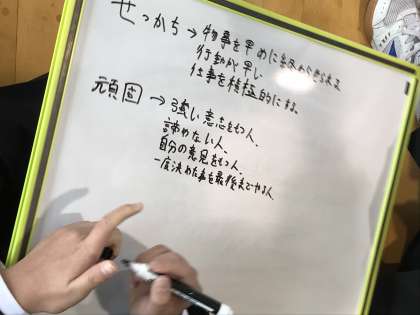 せっかち→物事を早めに終わらせられる
行動が早い
仕事を積極的にする。
頑固→強い意志をもつ人、
諦めない人、
自分の意見をもつ人、
一度決めた事を最後までやる人